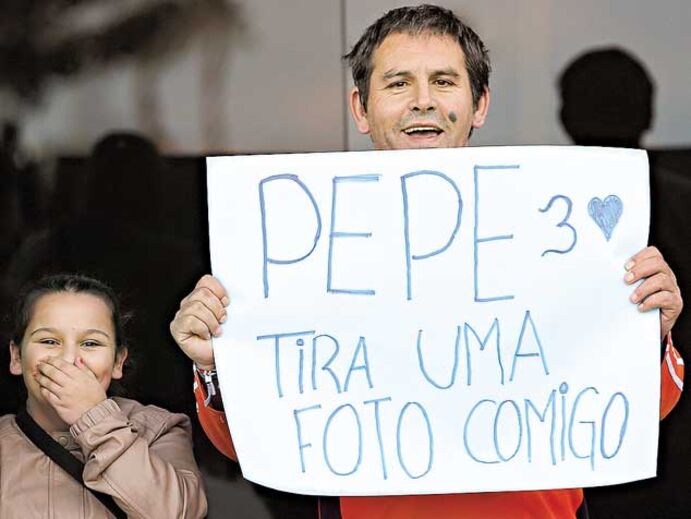 PEPE 3♥
TiRA UMA
FOTO COMiGO